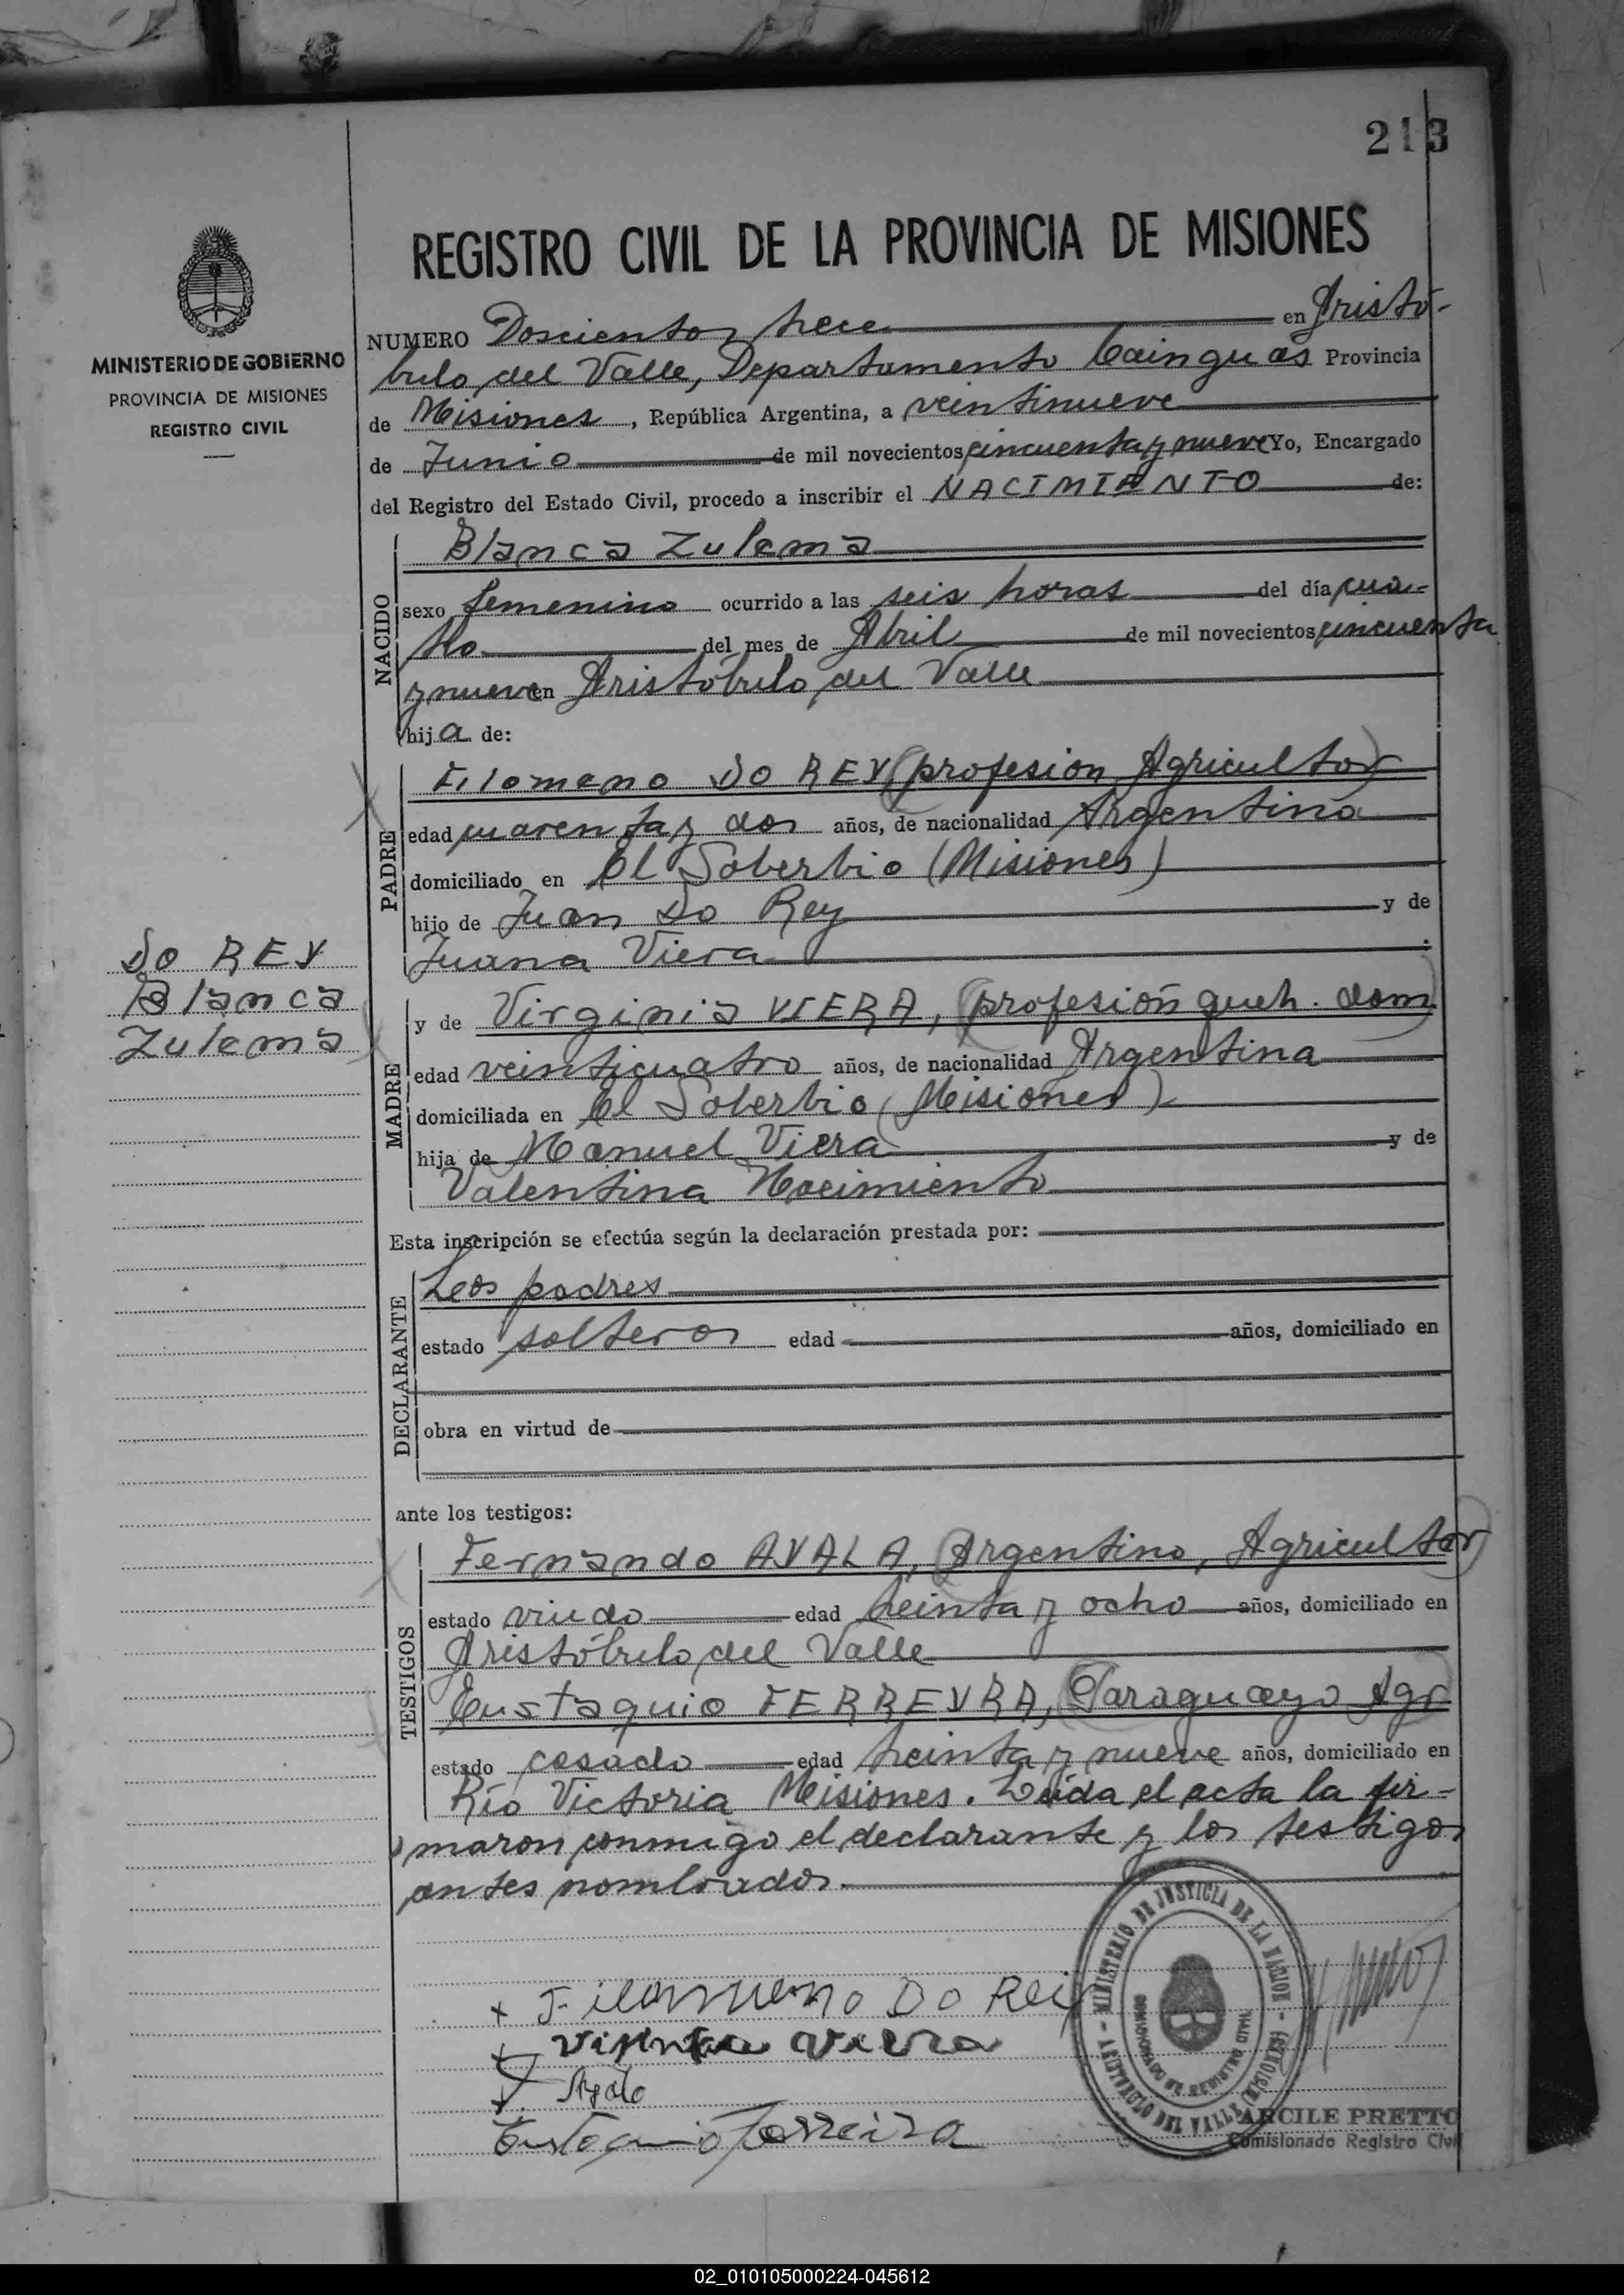 213
REGISTRO CIVIL DE LA PROVINCIA DE MISIONES
MINISTERIO DE GOBIERNO
PROVINCIA DE MISIONES
REGISTRO CIVIL
NUMERO Doscientos trece en Aristó-
bulo del Valle, Departamento Cainguas Provincia
de Misiones, República Argentina, a veintinueve
de Junio de mil novecientos cincuenta y nueve Yo, Encargado
del Registro del Estado Civil, procedo a inscribir el NACIMIENTO de:
NACIDO
Blanca Zulema
sexo femenino ocurrido a las seis horas del día cua-
tro del mes de Abril de mil novecientos cincuenta
y nueve en Aristóbulo del Valle
hija de:
PADRE
Filomeno DO REY (profesión Agricultor)
edad cuarenta y dos años, de nacionalidad Argentina
domiciliado en El Soberbio (Misiones)
hijo de Juan Do Rey y de
Juana Viera
DO REY
Blanca
Zulema
MADRE
y de Virginia VIERA, (profesión queh. dom)
edad veinticuatro años, de nacionalidad Argentina
domiciliada en El Soberbio (Misiones)
hija de Manuel Viera y de
Valentina Nacimiento
Esta inscripción se efectúa según la declaración prestada por:
DECLARANTE
Los padres
estado solteros edad años, domiciliado en
obra en virtud de
ante los testigos:
TESTIGOS
Fernando AYALA, (Argentino, Agricultor)
estado viudo edad treinta y ocho años, domiciliado en
Aristóbulo del Valle
Eustaquio FERREYRA, (Paraguayo Agr)
estado casado edad treinta y nueve años, domiciliado en
Río Victoria Misiones. Leída el acta la fir-
maron conmigo el declarante y los testigos
antes nombrados.
x Filomeno Do Rei
Viera
Ayala
Eustaquio Ferreira
MINISTERIO DE JUSTICIA DE LA NACION
ARISTOBULO DEL VALLE (MISIONES)
ARCILE PRETTO
Comisionado Registro Civil
02_010105000224-045612